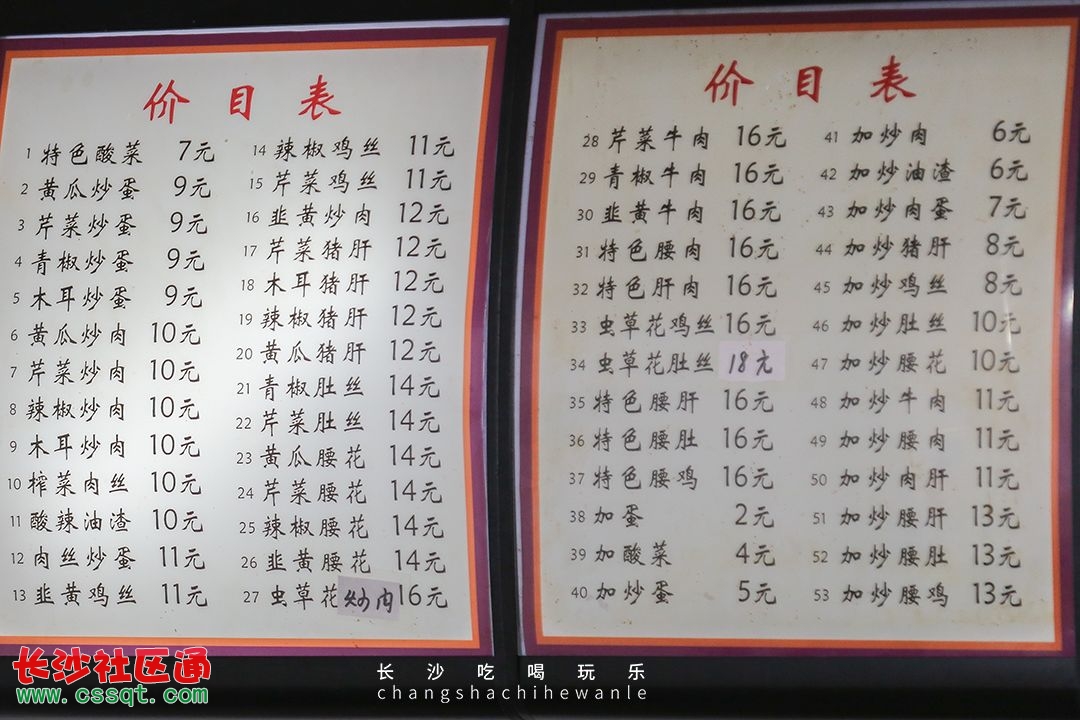 价目表
1 特色酸菜 7元
2 黄瓜炒蛋 9元
3 芹菜炒蛋 9元
4 青椒炒蛋 9元
5 木耳炒蛋 9元
6 黄瓜炒肉 10元
7 芹菜炒肉 10元
8 辣椒炒肉 10元
9 木耳炒肉 10元
10 榨菜肉丝 10元
11 酸辣油渣 10元
12 肉丝炒蛋 11元
13 韭黄鸡丝 11元
14 辣椒鸡丝 11元
15 芹菜鸡丝 11元
16 韭黄炒肉 12元
17 芹菜猪肝 12元
18 木耳猪肝 12元
19 辣椒猪肝 12元
20 黄瓜猪肝 12元
21 青椒肚丝 14元
22 芹菜肚丝 14元
23 黄瓜腰花 14元
24 芹菜腰花 14元
25 辣椒腰花 14元
26 韭黄腰花 14元
27 虫草花炒肉 16元
价目表
28 芹菜牛肉 16元
29 青椒牛肉 16元
30 韭黄牛肉 16元
31 特色腰肉 16元
32 特色肝肉 16元
33 虫草花鸡丝 16元
34 虫草花肚丝 18元
35 特色腰肝 16元
36 特色腰肚 16元
37 特色腰鸡 16元
38 加蛋 2元
39 加酸菜 4元
40 加炒蛋 5元
41 加炒肉 6元
42 加炒油渣 6元
43 加炒肉蛋 7元
44 加炒猪肝 8元
45 加炒鸡丝 8元
46 加炒肚丝 10元
47 加炒腰花 10元
48 加炒牛肉 11元
49 加炒腰肉 11元
50 加炒肉肝 11元
51 加炒腰肝 13元
52 加炒腰肚 13元
53 加炒腰鸡 13元
长沙社区通
www.cssqt.com
长沙吃喝玩乐
changshachihewanle